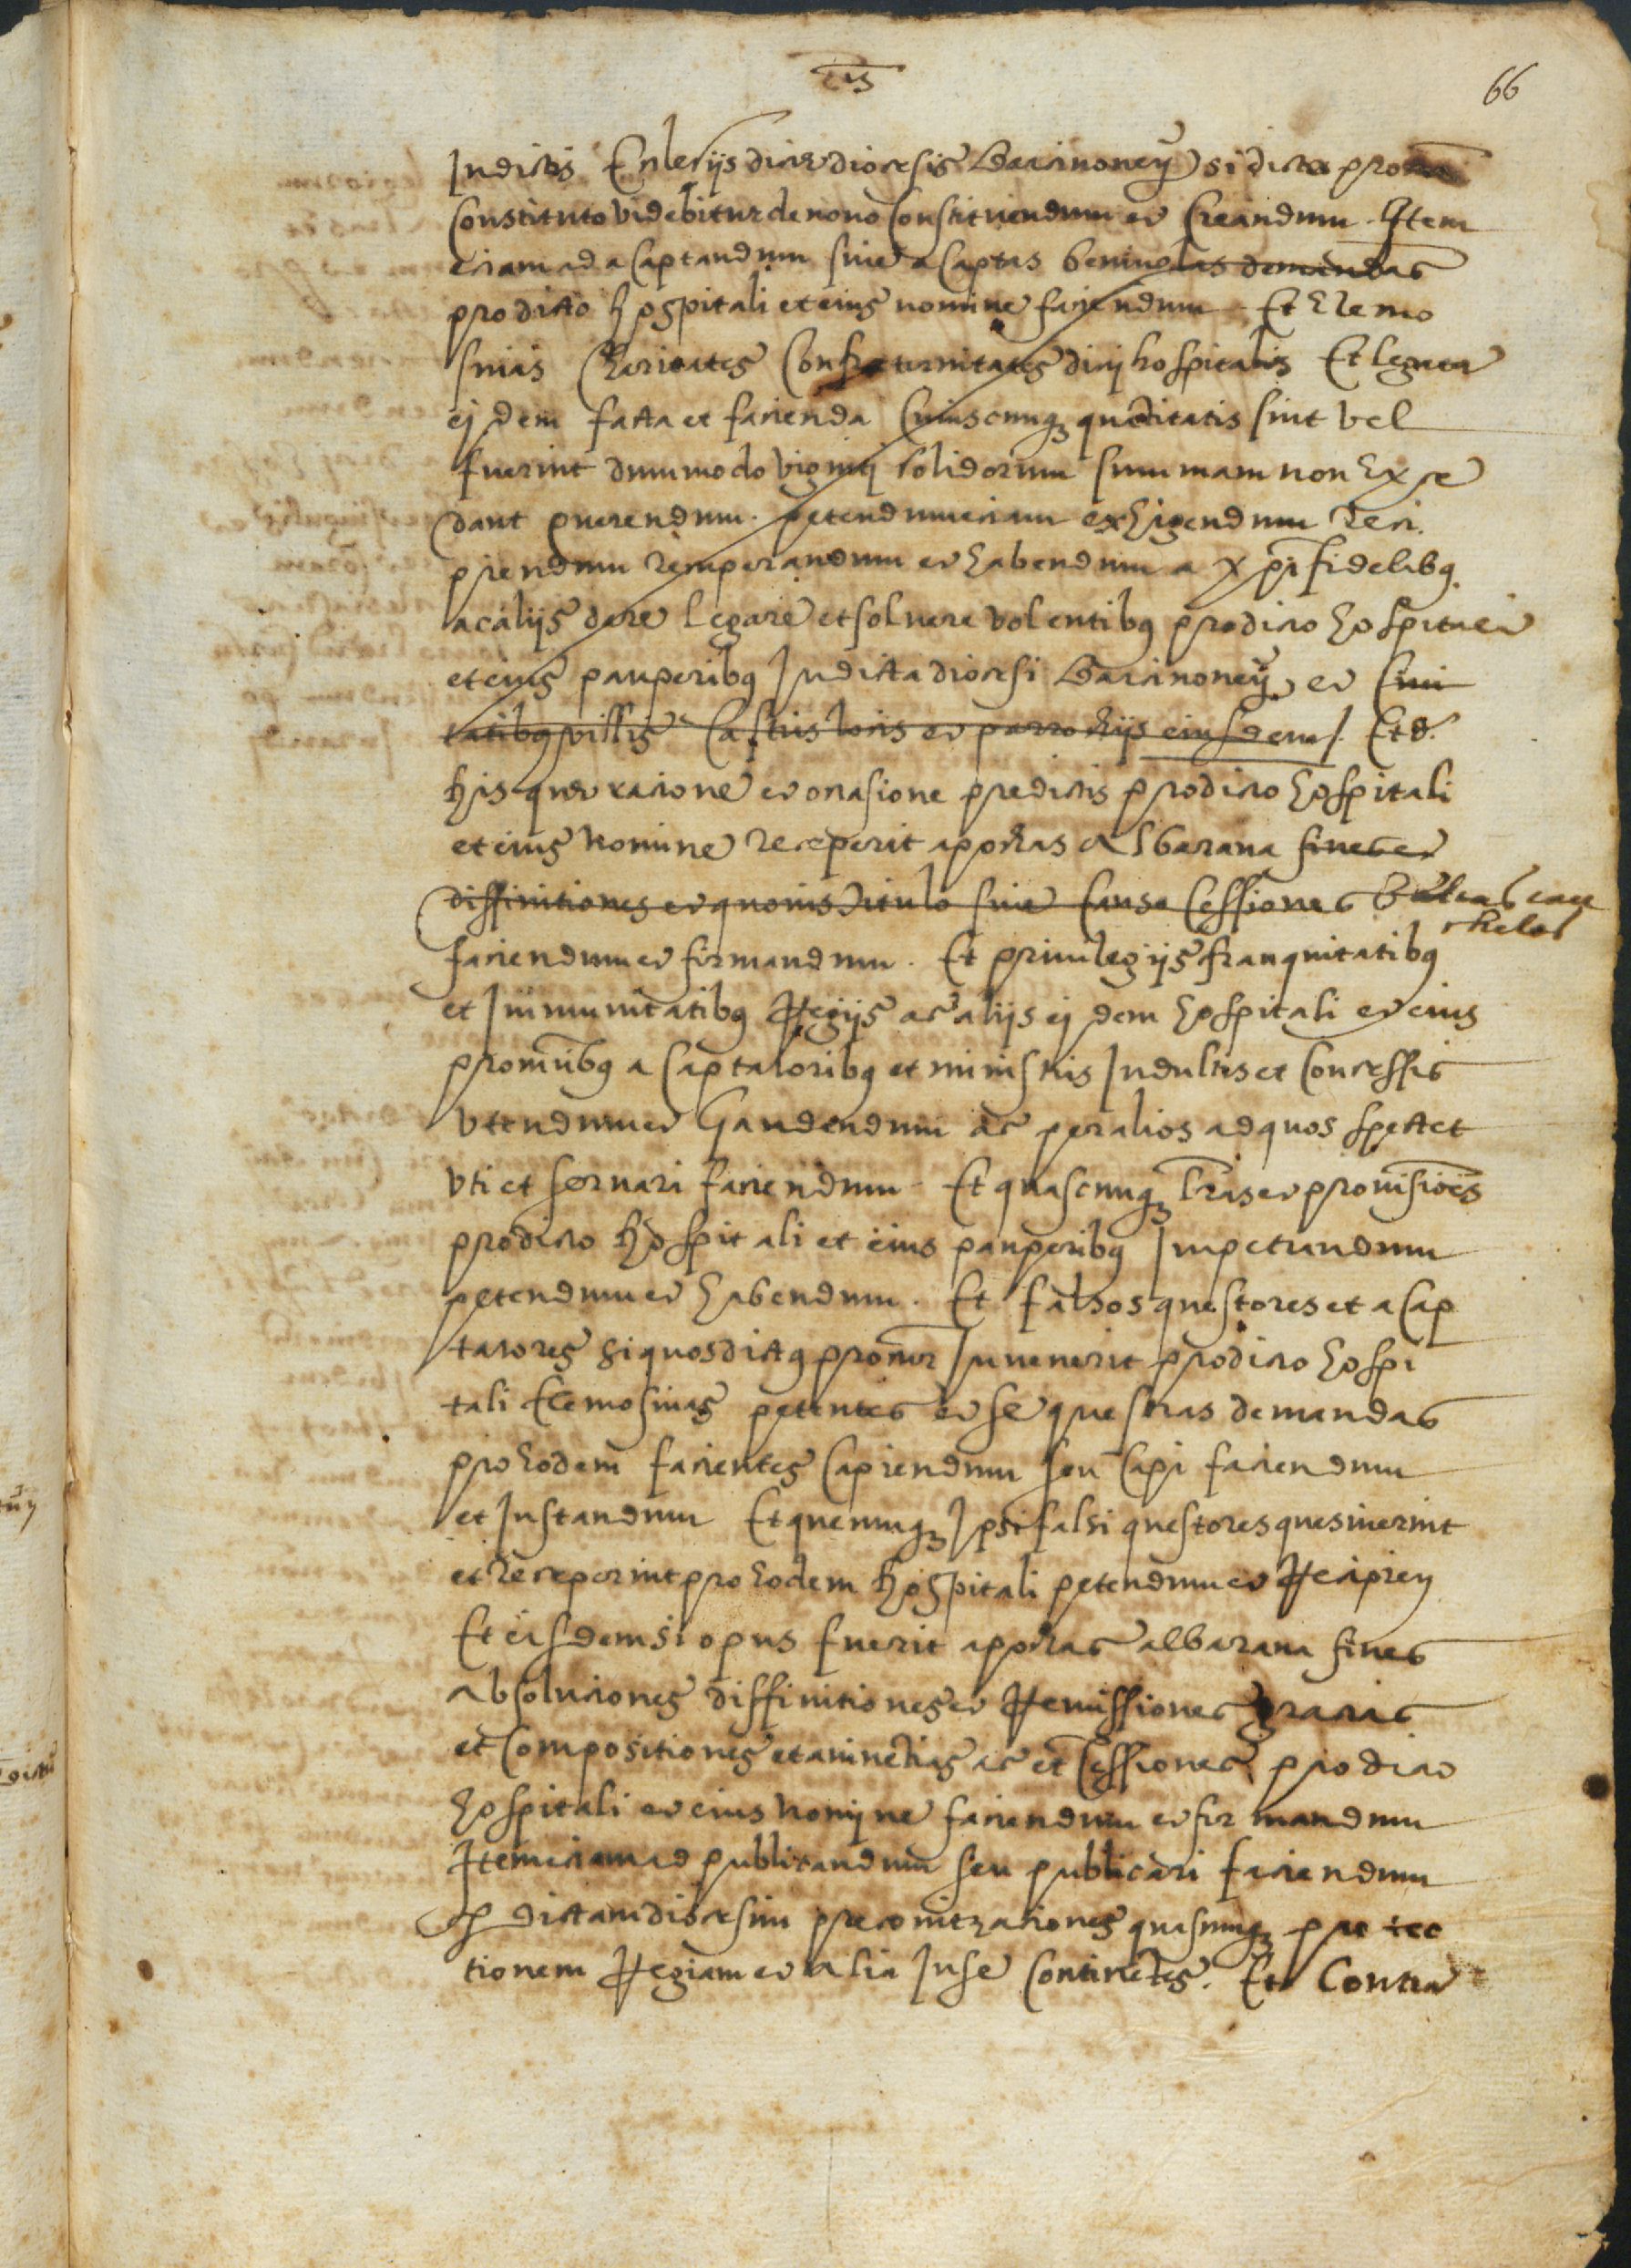 66
Indictis Ecclesijs dicte diocesis Barcinoneñ si dicto
Constituto videbitur de novo Constituendum et Creandum. Item
eciam ad acaptandum sive acaptas beninolas demandas
pro dicto hospitali et eius nomine faciendum Et Elemo
sinas Charitates Confraternitates dicti hospitalis Et legata
ej dem facta et facienda Cuiuscumq quantitatis sint vel
fuerint dummodo viginti solidorum summam non Exce
dant querendum. petendum eciam exhigendum Reci
piendum recuperandum et habendum a xpi fidelibq
ac alijs dare legare et solvere volentibq pro dicto hospitali
et eius pauperibq In dicta diocesi Barcinoneñ et Civi
tatibq villis Castris locis et parrochijs eiusdem /. Et d
his que racione et ocasione predictis pro dicto hospitali
et eius nomine receperit apochas Albarana fines et
diffinitiones et quovis titulo sive Causa Cessiones
faciendum et firmandum. Et privilegijs franquitatibq
et Immunitatibq Regijs ac alijs ej dem hospitali et eius
procuribq acaptatoribq et ministris Indultis et Concessis
vtendum et Gaudendum ac per alios ad quos spectet
vti et servari faciendum Et quascumq lras et provisiões
pro dicto hospitali et eius pauperibq Impetrandum
petendum et habendum. Et falsos questores et acap
tatores si quos dictq procur Invenerit pro dicto hospi
tali Elemosinas petentes et se questras demandas
pro Eodem facientes Capiendum seu Capi faciendum
et Instandum Et quecumq Ipsi falsi questores quesiverint
et receperint pro eodem hospitali petendum et Recipieñ
Et eisdem si opus fuerit apochas albarana fines
absoluciones diffinitiones et Remissiones gracias
et Compositiones et avinencias ac et Cessiones pro dicto
hospitali et eius nomine faciendum et firmandum
Item eciam ad publicandum seu publicari faciendum
p dictam diocesim preconitzaciones quascumq protec
tionem Regiam et alia In se continetes. Et Contra